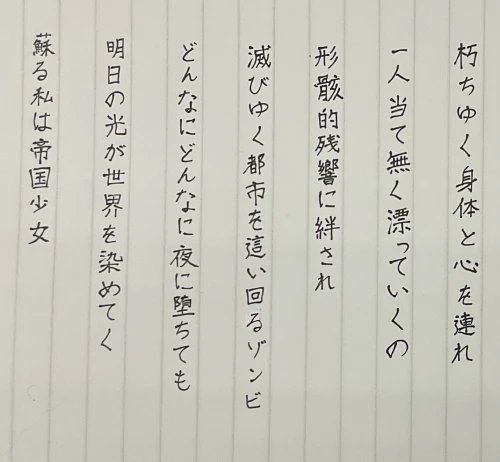 朽ちゆく身体と心を連れ
一人当て無く漂っていくの
形骸的残響に絆され
滅びゆく都市を這い回るゾンビ
どんなにどんなに夜に堕ちても
明日の光が世界を染めてく
蘇る私は帝国少女